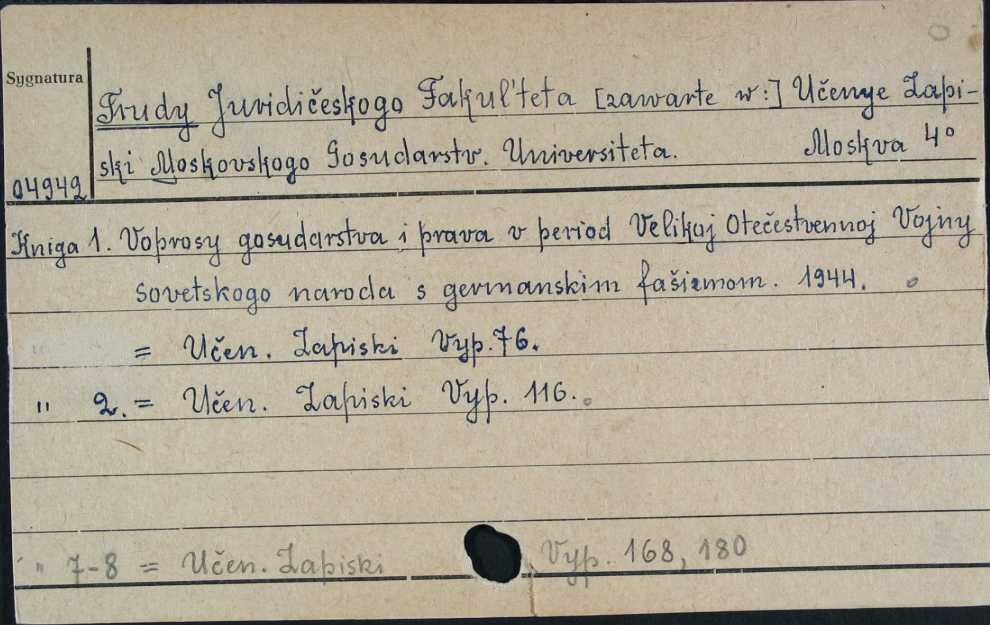 Sygnatura
Trudy Juridičeskogo Fakul'teta [zawarte w:] Učenye Zapi-
ski Moskovskogo Gosudarstv. Universiteta. Moskva 4°
04942
Kniga 1. Voprosy gosudarstva i prava v period Velikoj Otečestvennoj Vojny
sovetskogo naroda s germanskim fašizmom. 1944.
= Učen. Zapiski Vyp. 76.
" 2. = Učen. Zapiski Vyp. 116.
" 7-8 = Učen. Zapiski Vyp. 168, 180